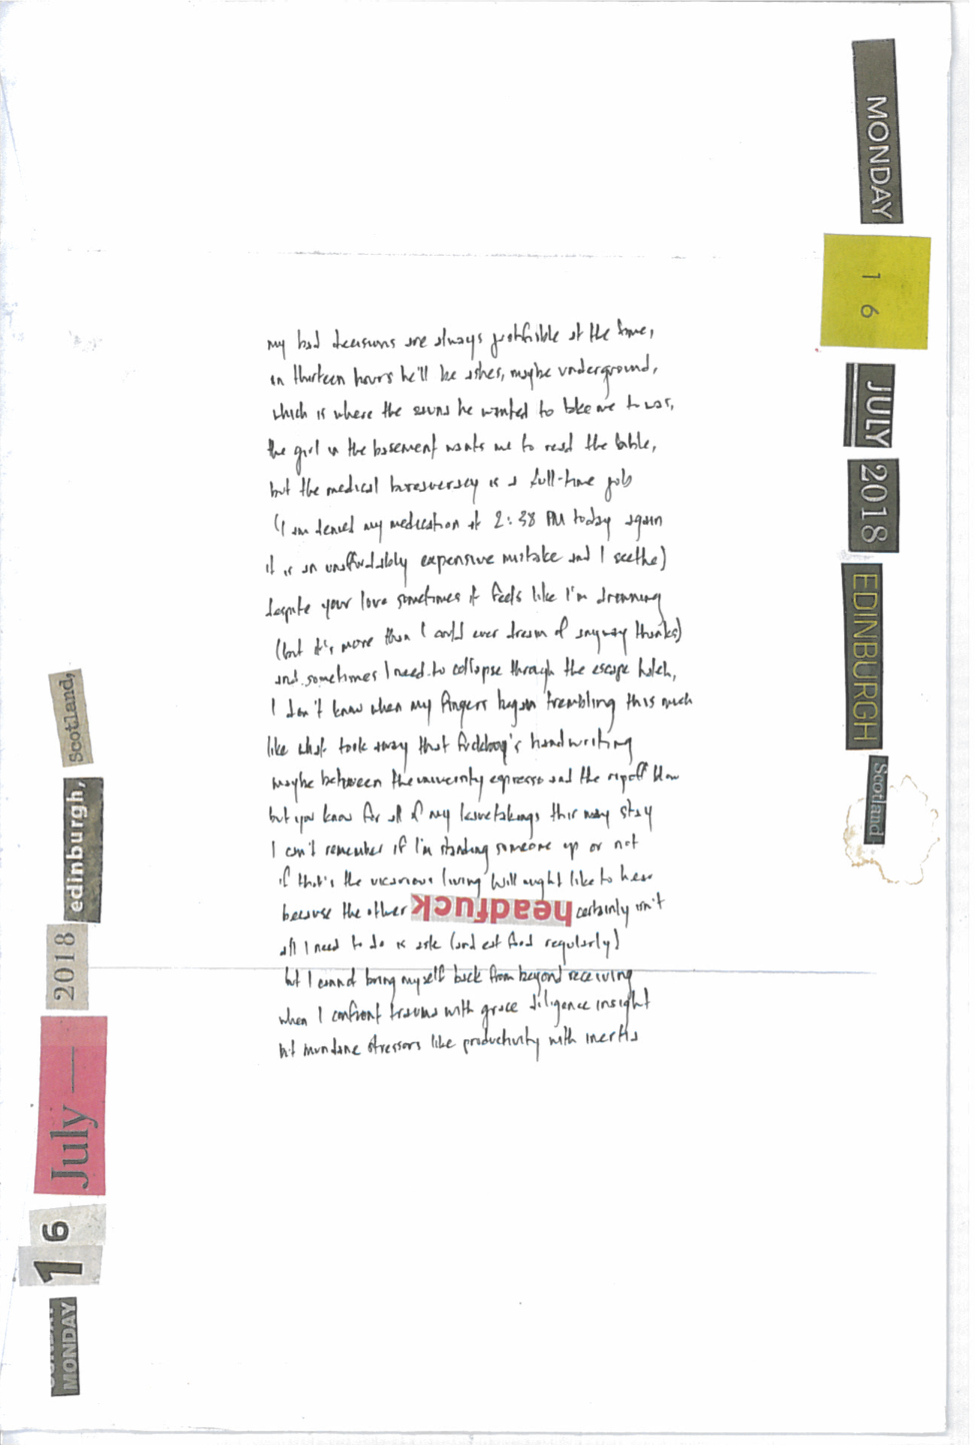 my bad decisions are always justifiable at the time,
in thirteen hours he'll be ashes, maybe underground,
which is where the sauna he wanted to take me to was,
the girl in the basement wants me to read the bible,
but the medical bureaucracy is a full-time job
(I am denied my medication at 2:38 PM today again
it is an unaffordably expensive mistake and I seethe)
despite your love sometimes it feels like I'm drowning
(but it's more than I could ever dream of anyway thanks)
and sometimes I need to collapse through the escape hatch,
I don't know when my fingers began trembling this much
like what took away that fuckboy's handwriting
maybe between the university espresso and the ripoff
but you know for all of my leavetakings this may stay
I can't remember if I'm standing someone up or not
if that's the vicarious living Will might like to hear
because the other headfuck certainly isn't
all I need to do is ask (and eat food regularly)
but I cannot bring myself back from beyond receiving
when I confront trauma with grace diligence insight
but mundane stressors like productivity with inertia
MONDAY
16
JULY
2018
EDINBURGH
Scotland
MONDAY
16
July —
2018
edinburgh,
Scotland,